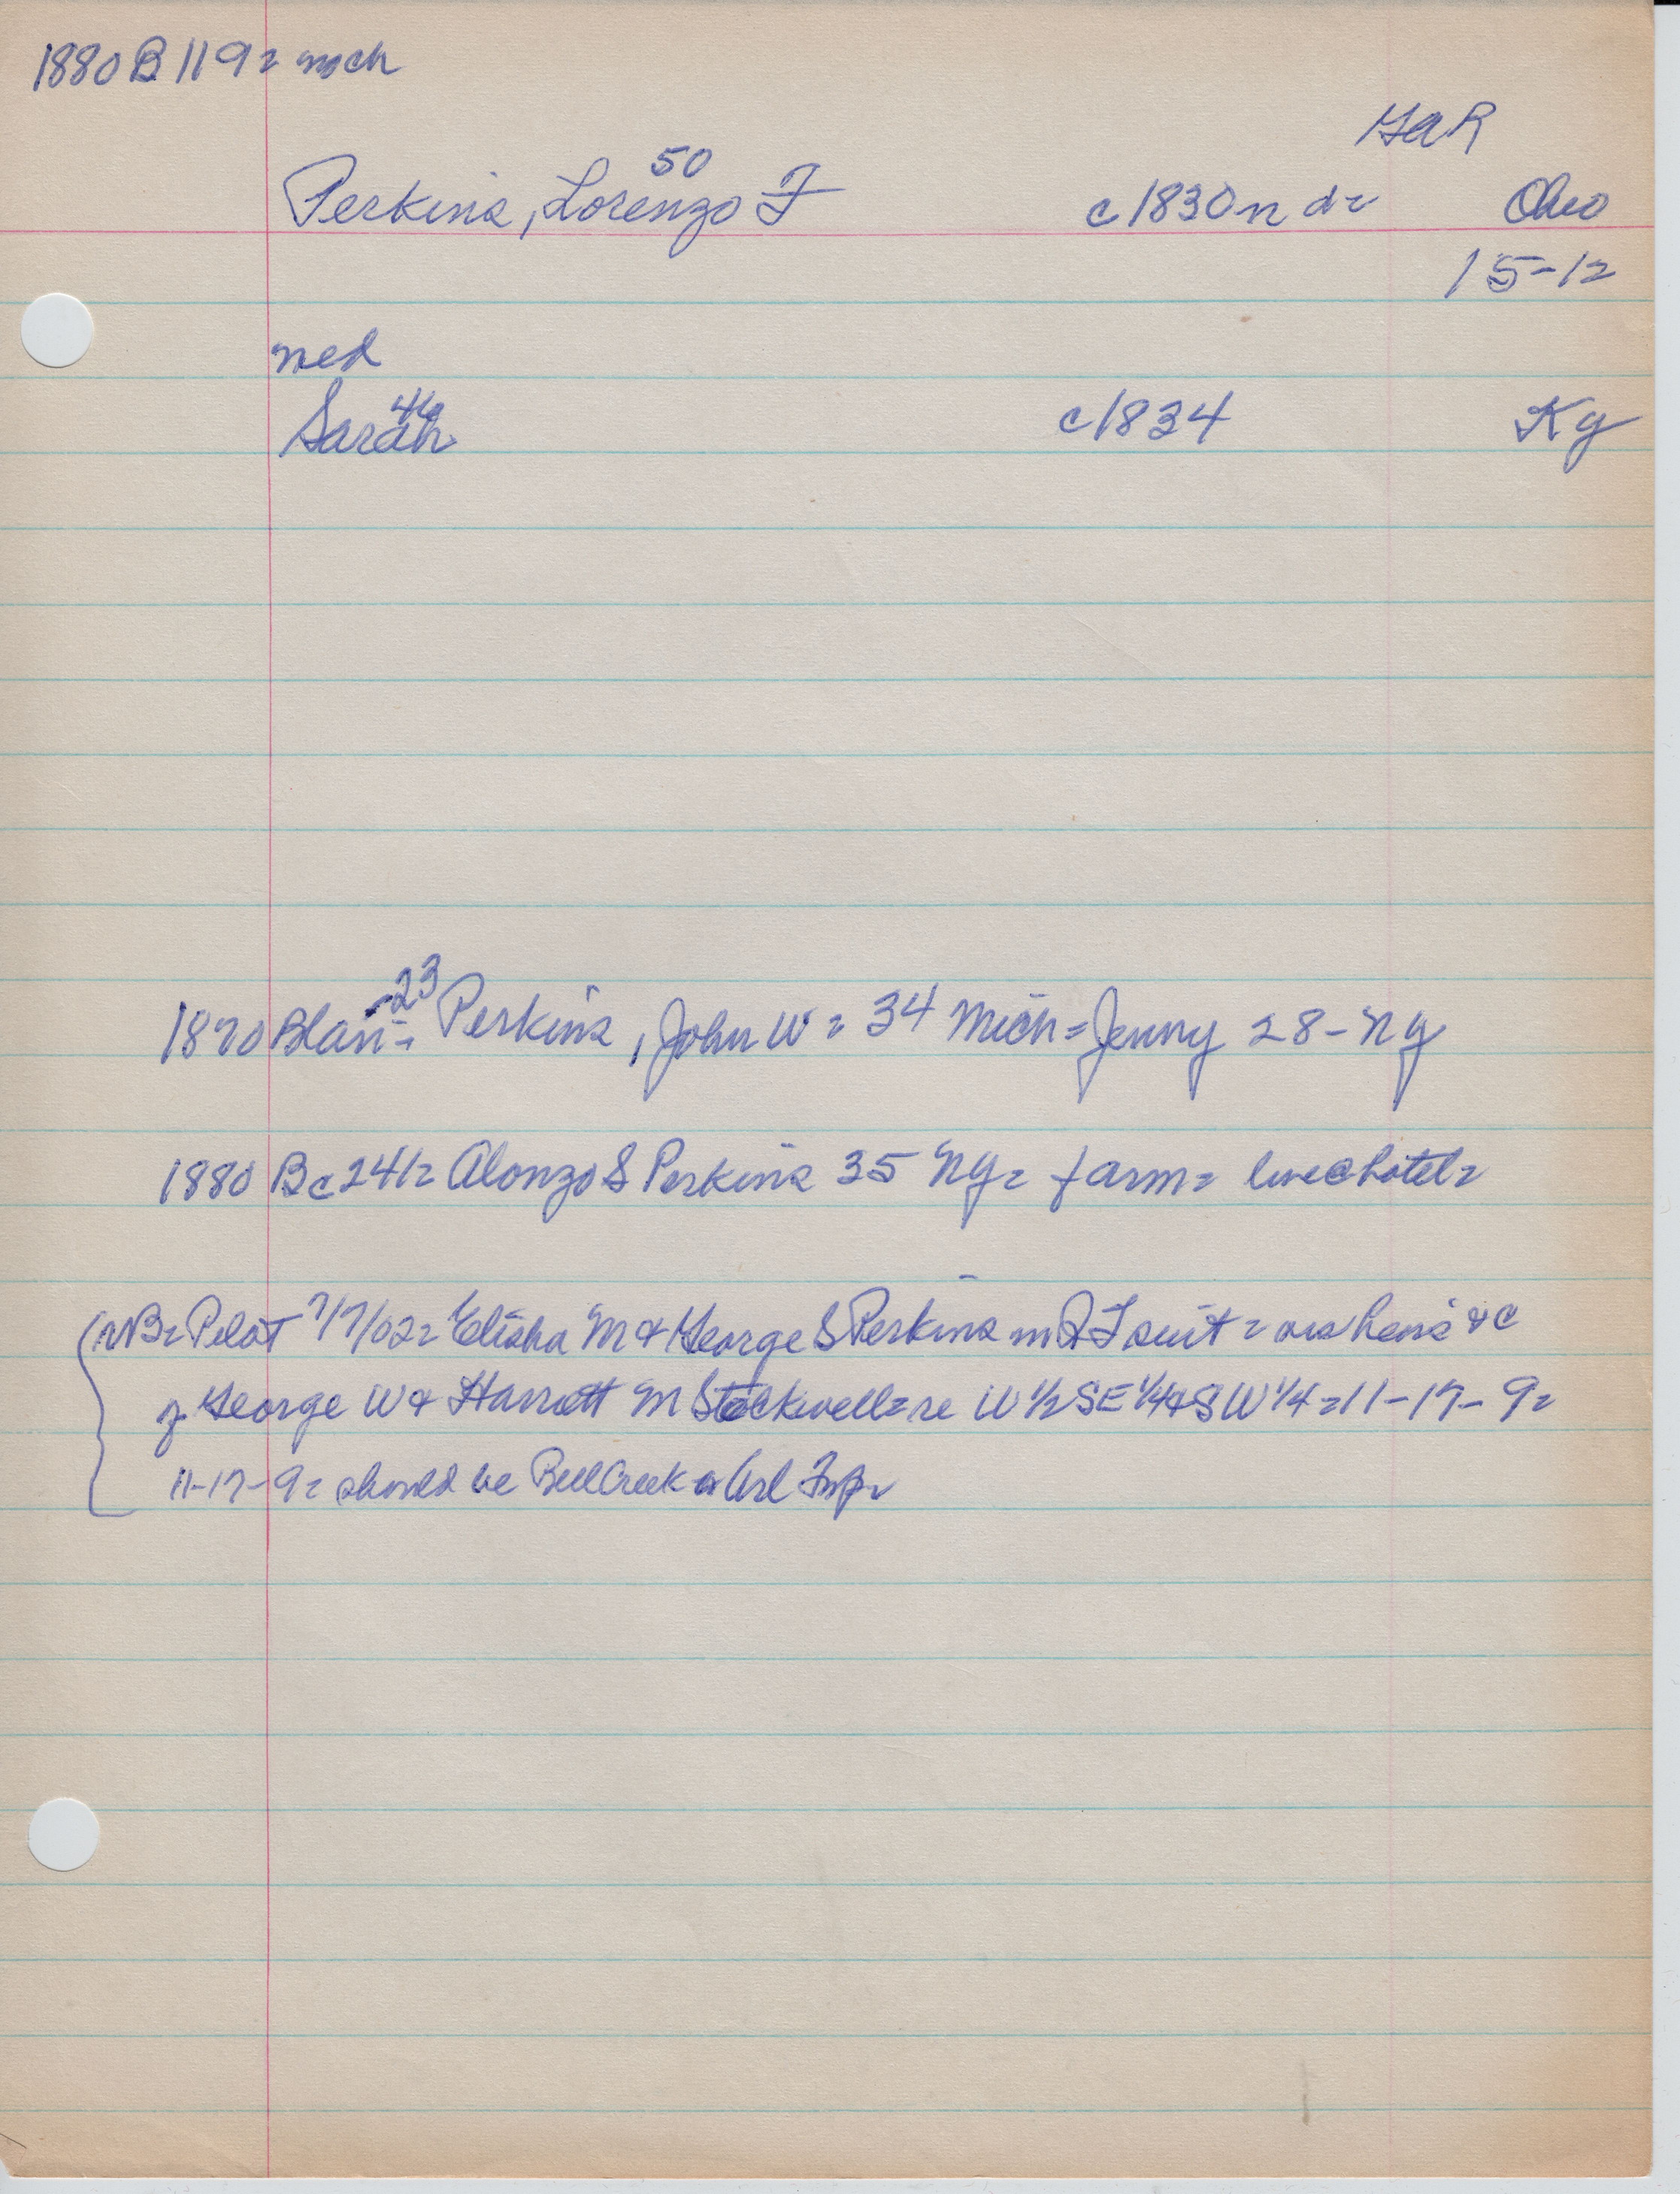 1880 B 119= mch
GAR
50
Perkins, Lorenzo F c1830 n d= Ohio
15-12
med
46
Sarah c1834 Ky
23
1870 Blair=, Perkins, John W = 34 Mich = Jenny 28 - NY
1880 Bc241= Alonzo S Perkins 35 NY= farm= live@hotel=
NB= Pilot 7/7/02= Elisha M & George S Perkins in QT suit = as heirs &c
of George W & Harrott M Stockwell=re W 1/2 SE 1/4 & SW 1/4 = 11-17-9=
11-17-9= should be Bell Creek or Arl Twp=